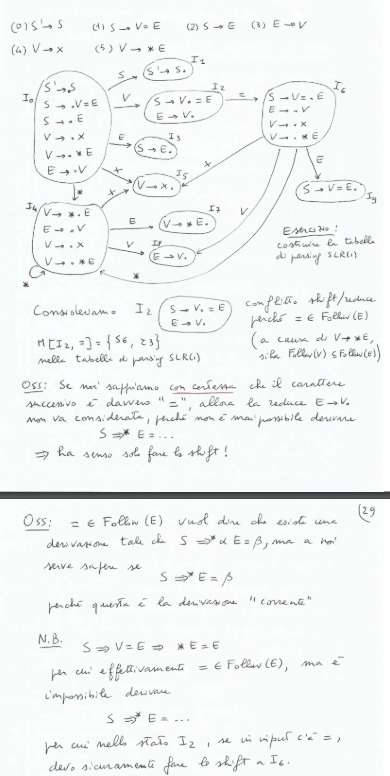 (0) S'→S (1) S→V=E (2) S→E (3) E→V
(4) V→x (5) V→*E
I0
S'→.S
S→.V=E
S→.E
V→.x
V→.*E
E→.V
S
S'→S. I1
V
I2
S→V.=E
E→V.
=
I6
S→V=.E
E→.V
V→.x
V→.*E
E
S→E. I3
x
x
V→x. I5
x
*
I4
V→*.E
E→.V
V→.x
V→.*E
*
E
V→*E. I7
V
E→V. I8
V
*
E
S→V=E. I9
Esercizio:
costruire la tabella
di parsing SLR(1)
Consideriamo I2
S→V.=E
E→V.
conflitto shift/reduce
perché = ∈ Follow(E)
(a causa di V→*E,
sia Follow(V) ⊆ Follow(E))
M[I2, =] = {S6, r3}
nella tabella di parsing SLR(1)
Oss: Se noi sappiamo con certezza che il carattere
successivo è davvero "=", allora la reduce E→V.
non va considerata, perché non è mai possibile derivare
S ⇒* E = ...
⇒ ha senso solo fare lo shift!
(29
Oss: = ∈ Follow(E) vuol dire che esiste una
derivazione tale che S ⇒* αE=β, ma a noi
serve sapere se
S ⇒* E=β
perché questa è la derivazione "corrente"
N.B. S ⇒ V=E ⇒ *E=E
per cui effettivamente = ∈ Follow(E), ma è
impossibile derivare
S ⇒* E = ...
per cui nello stato I2, se in input c'è =,
devo sicuramente fare lo shift a I6.